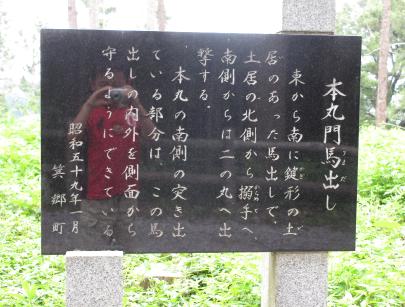 本丸門馬出し
東から南に鍵形の土
居のあった馬出しで、
土居の北側から搦手へ
南側からは二の丸へ出
撃する。
本丸の南側の突き出
ている部分は、この馬
出しの内外を側面から
守るようにできている。
昭和五十九年一月
箕郷町